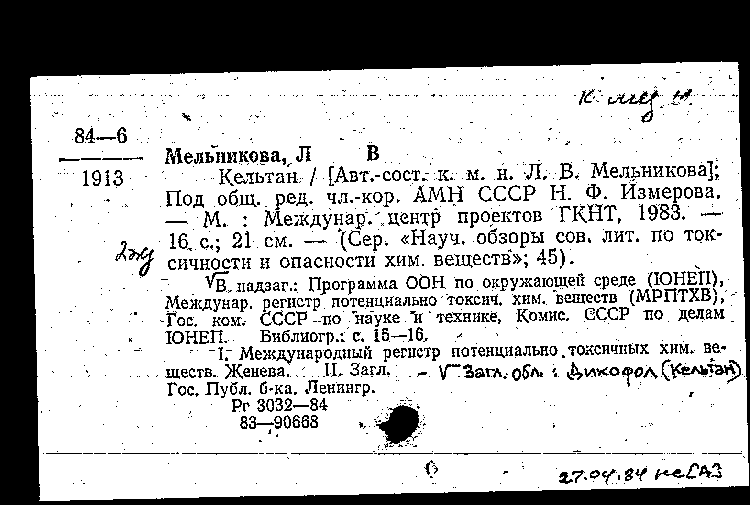 84—6
1913
Мельникова, Л В
Кельтан / [Авт.-сост. к. м. н. Л. В. Мельникова];
Под общ. ред. чл.-кор. АМН СССР Н. Ф. Измерова.
— М. : Междунар. центр проектов ГКНТ, 1983. —
16 с.; 21 см. — (Сер. «Науч. обзоры сов. лит. по ток-
сичности и опасности хим. веществ»; 45).
В надзаг.: Программа ООН по окружающей среде (ЮНЕП),
Междунар. регистр потенциально токсич. хим. веществ (МРПТХВ),
Гос. ком. СССР по науке и технике, Комис. СССР по делам
ЮНЕП. Библиогр.: с. 15—16.
I. Международный регистр потенциально токсичных хим. ве-
ществ. Женева. II. Загл. — V Загл. обл.: Дикофол (Кельтан)
Гос. Публ. б-ка. Ленингр.
Рг 3032—84
83—90668
27.04.84